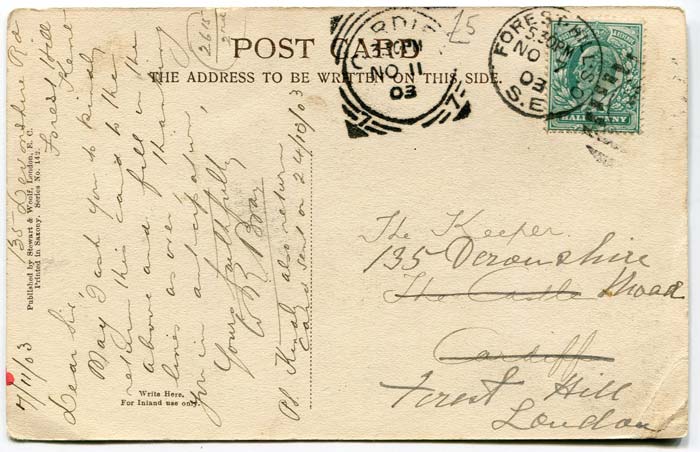 2615
£5
CARDIFF
3.30PM
NO 11
03
FOREST HILL S.O.
5.30PM
NO
03
S.E.
HALFPENNY
POST CARD
THE ADDRESS TO BE WRITTEN ON THIS SIDE.
135 Devonshire Rd
Forest Hill
Kent
7/11/03
Dear Sir,
May I ask you to kindly
return this card to the
above and fill in the
lines as over, thanking
you in anticipation,
Yours faithfully
W R Bray
PS Kindly also return
card sent on 24/10/03
Published by Stewart & Woolf, London, E. C.
Printed in Saxony. Series No. 142.
Write Here.
For Inland use only.
The Keeper
135 Devonshire
The Castle Road
Cardiff
Forest Hill
London